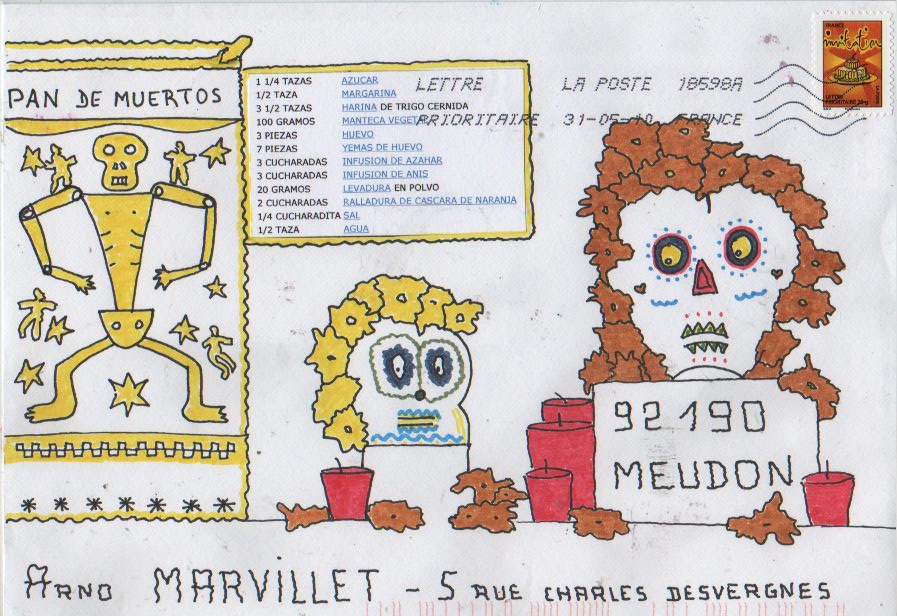 PAN DE MUERTOS
1 1/4 TAZAS AZUCAR
1/2 TAZA MARGARINA
3 1/2 TAZAS HARINA DE TRIGO CERNIDA
100 GRAMOS MANTECA VEGETAL
3 PIEZAS HUEVO
7 PIEZAS YEMAS DE HUEVO
3 CUCHARADAS INFUSION DE AZAHAR
3 CUCHARADAS INFUSION DE ANIS
20 GRAMOS LEVADURA EN POLVO
2 CUCHARADAS RALLADURA DE CASCARA DE NARANJA
1/4 CUCHARADITA SAL
1/2 TAZA AGUA
LETTRE LA POSTE 18598A
PRIORITAIRE 31-05-10 FRANCE
FRANCE
invitation
LETTRE
PRIORITAIRE 20g
LA POSTE
92190
MEUDON
ARNO MARVILLET - 5 RUE CHARLES DESVERGNES